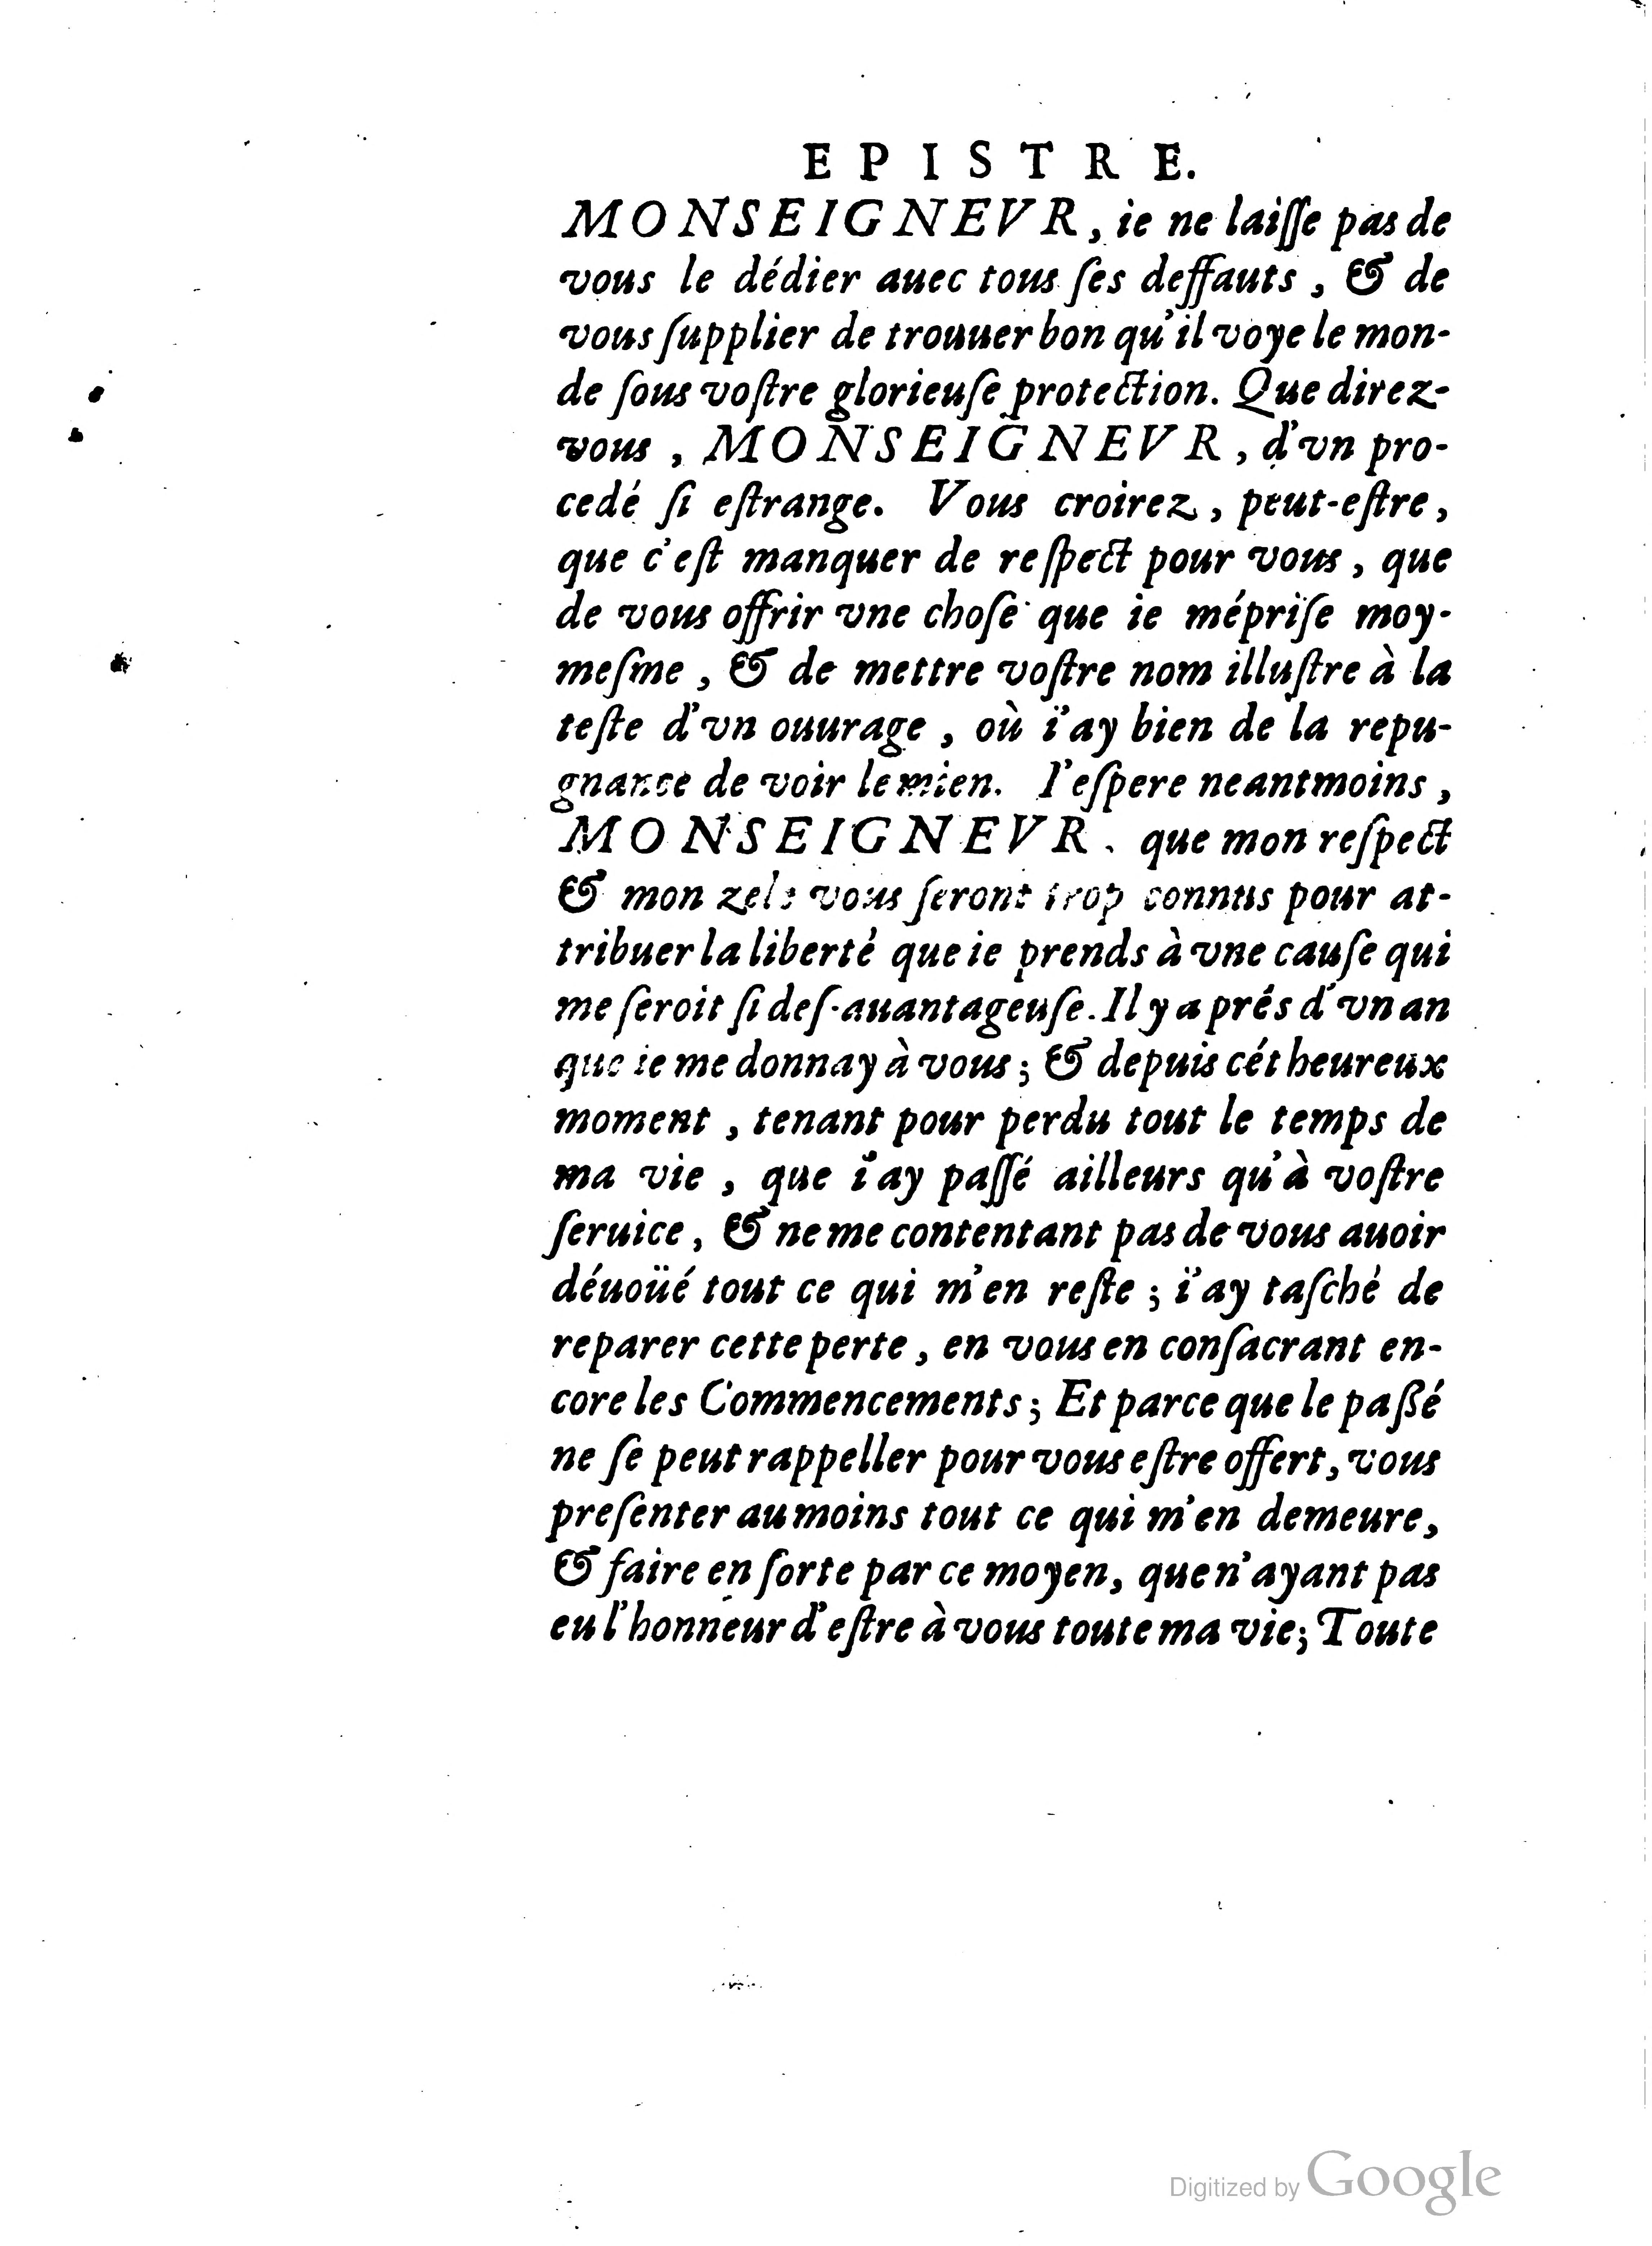 EPISTRE.
MONSEIGNEVR, ie ne laiſſe pas de
vous le dédier auec tous ſes deffauts, & de
vous ſupplier de trouuer bon qu'il voye le mon-
de ſous voſtre glorieuſe protection. Que direz-
vous, MONSEIGNEVR, d'vn pro-
cedé ſi eſtrange. Vous croirez, peut-eſtre,
que c'eſt manquer de reſpect pour vous, que
de vous offrir vne choſe que ie mépriſe moy-
meſme, & de mettre voſtre nom illuſtre à la
teſte d'vn ouurage, où i'ay bien de la repu-
gnance de voir le mien. I'eſpere neantmoins,
MONSEIGNEVR. que mon reſpect
& mon zele vous ſeront trop connus pour at-
tribuer la liberté que ie prends à vne cauſe qui
me ſeroit ſi deſ-auantageuſe. Il y a prés d'vn an
que ie me donnay à vous; & depuis cét heureux
moment, tenant pour perdu tout le temps de
ma vie, que i'ay paſſé ailleurs qu'à voſtre
ſeruice, & ne me contentant pas de vous auoir
déuoüé tout ce qui m'en reſte; i'ay taſché de
reparer cette perte, en vous en conſacrant en-
core les Commencements; Et parce que le paßé
ne ſe peut rappeller pour vous eſtre offert, vous
preſenter au moins tout ce qui m'en demeure,
& faire en ſorte par ce moyen, que n'ayant pas
eu l'honneur d'eſtre à vous toute ma vie; Toute
Digitized by Google